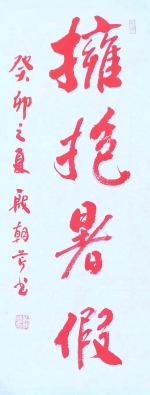 擁抱暑假
癸卯之夏